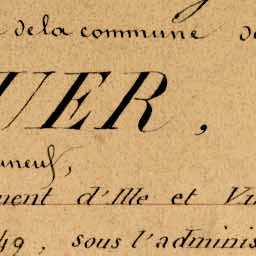 de la commune de
UER,
uneuf,
ment d'Ille et Vi
49, sous l'adminis